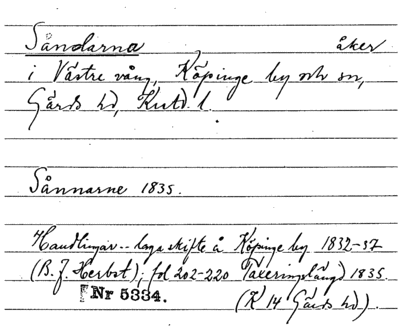 Såndarna, åker
i Västre vång, Köpinge by och sn,
Gärds hd, Krstd. l.
Sånnarne 1835.
Handlingar .. laga skifte å Köpinge by 1832-37
(B. J. Herbst); fol 202-220 Taxeringslängd 1835
Nr 5334. (K 14 Gärds hd).